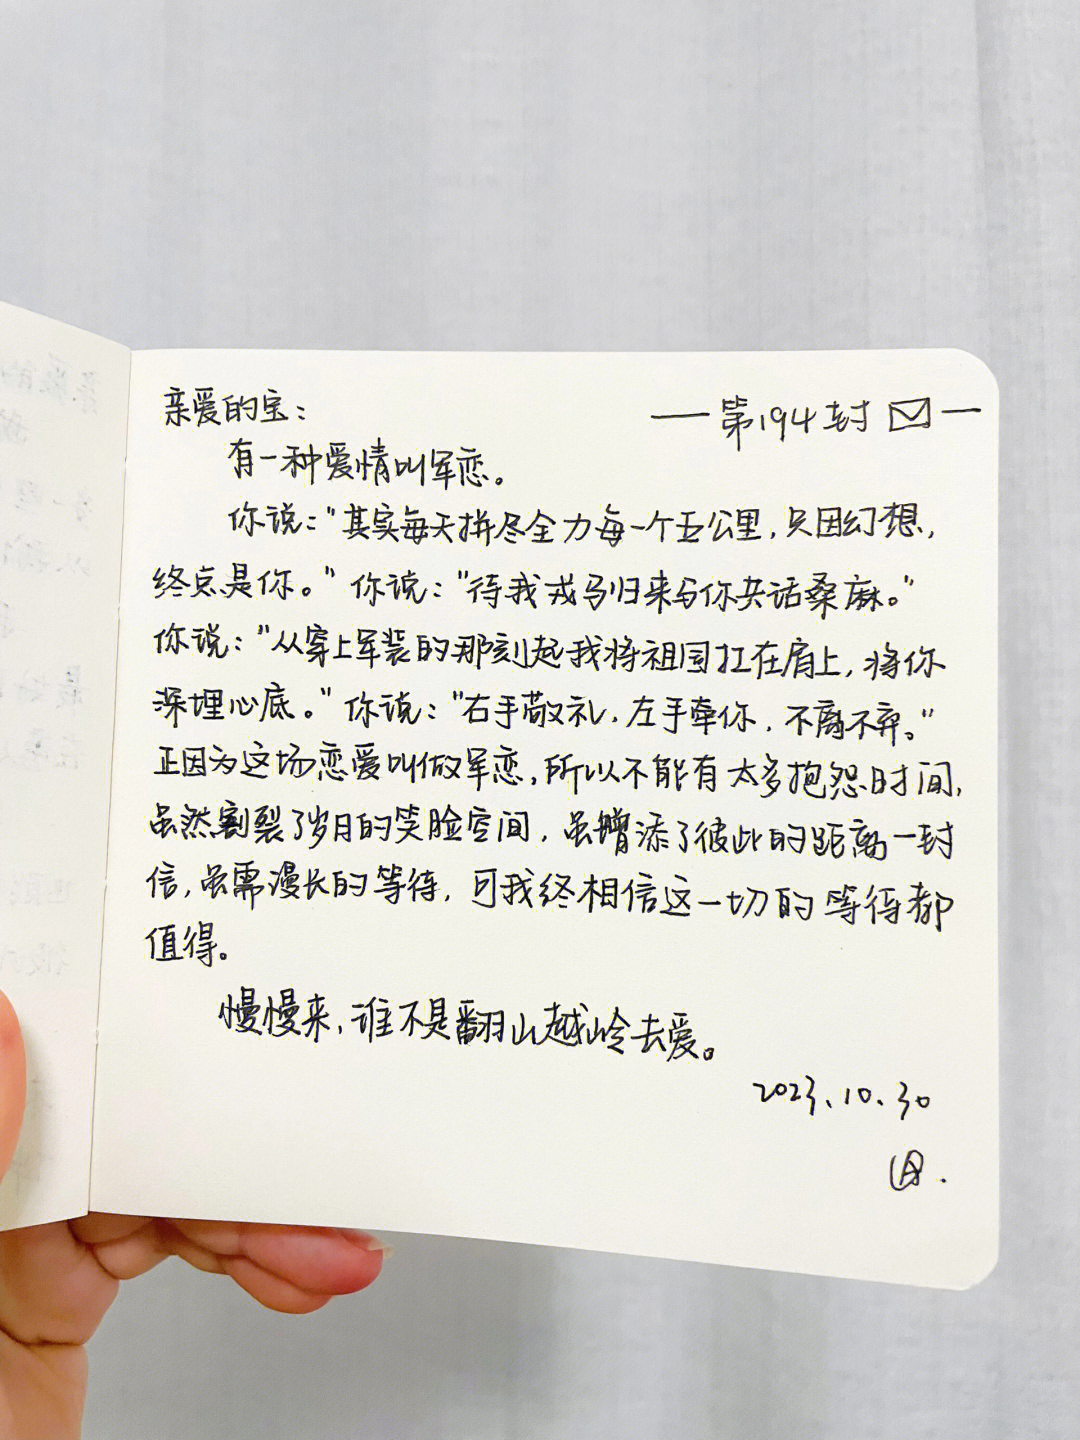 亲爱的宝：
—第194封—
有一种爱情叫军恋。
你说："其实每天拼尽全力每一个五公里，只因幻想，
终点是你。"你说："待我戎马归来与你共话桑麻。"
你说："从穿上军装的那刻起我将祖国扛在肩上，将你
深埋心底。"你说："右手敬礼，左手牵你，不离不弃。"
正因为这场恋爱叫做军恋，所以不能有太多抱怨时间，
虽然割裂了岁月的笑脸空间，虽增添了彼此的距离一封
信，虽需漫长的等待，可我终相信这一切的等待都
值得。
慢慢来，谁不是翻山越岭去爱。
2023.10.30